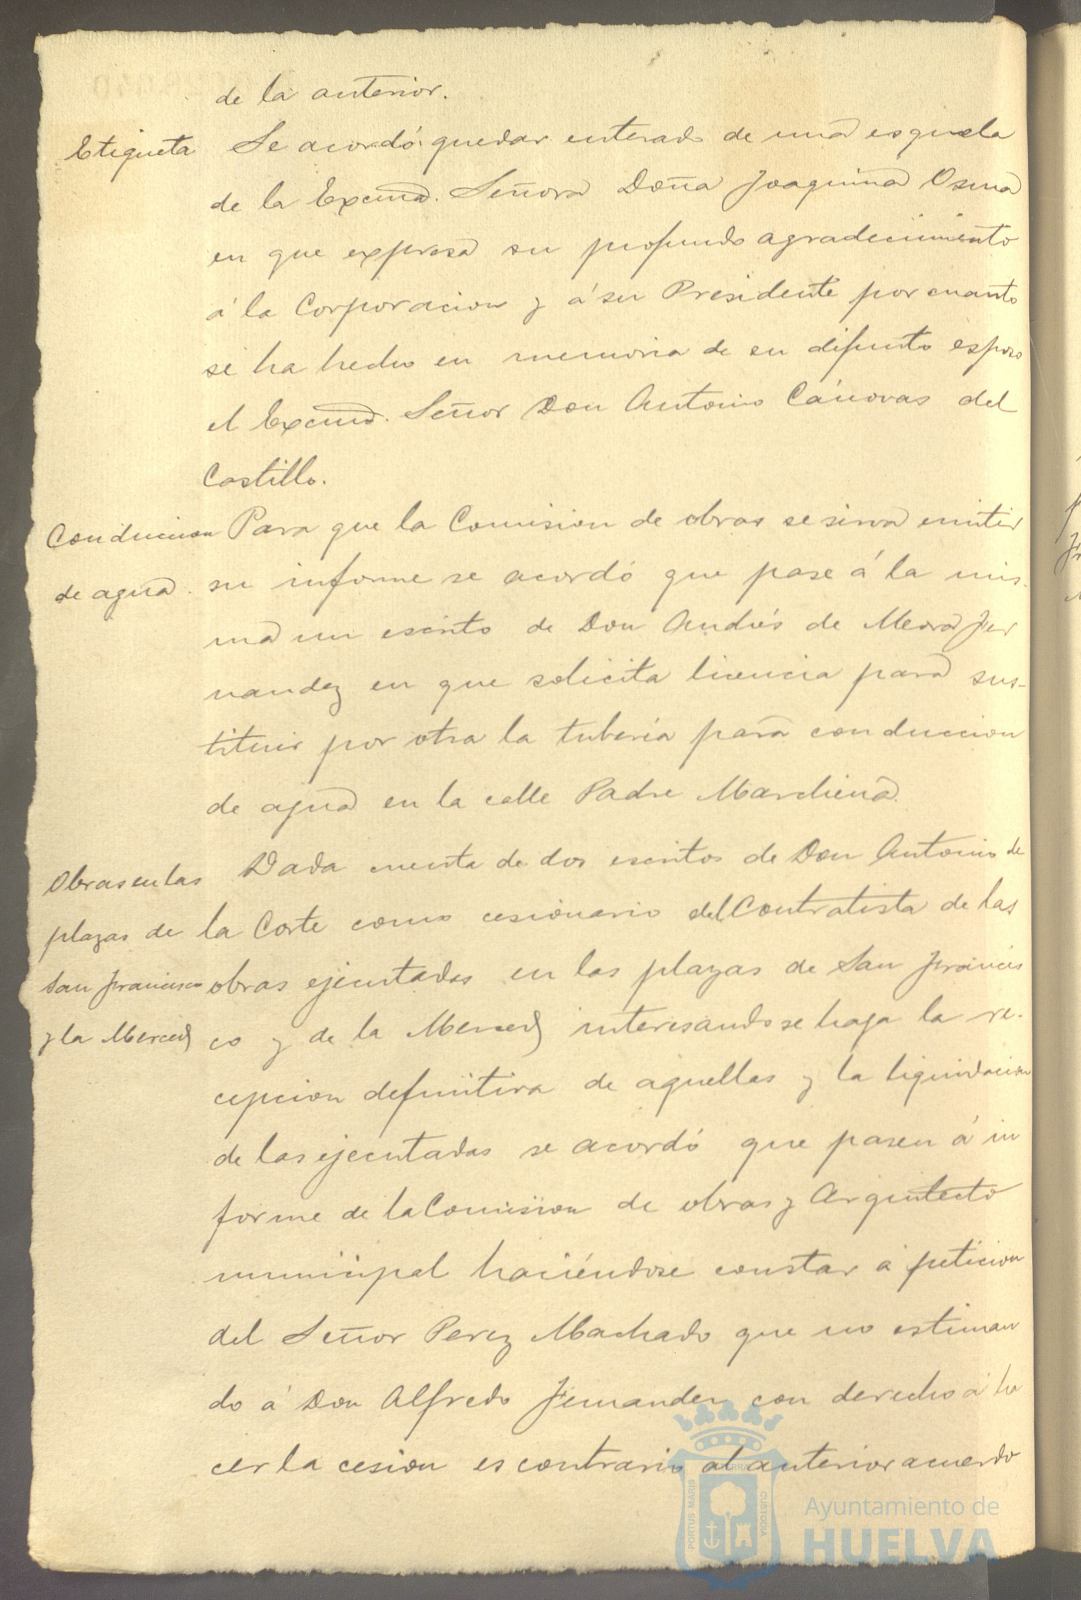 de la anterior.
Etiqueta Se acordó quedar enterado de una esquela
de la Excma. Señora Doña Joaquina Osma
en que expresa su profundo agradecimiento
á la Corporacion y á su Presidente por cuanto
se ha hecho en memoria de su difunto esposo
el Excmo. Señor Don Antonio Cánovas del
Castillo.
Conduccion Para que la Comision de obras se sirva emitir
de agua. su informe se acordó que pase á la mis-
ma un escrito de Don Andrés de Mora Fer
nandez en que solicita licencia para sus-
tituir por otra la tubería para conduccion
de agua en la calle Padre Marchena.
Obras en las Dada cuenta de dos escritos de Don Antonio de
plazas de la Corte como cesionario del Contratista de las
San Francisco obras ejecutadas en las plazas de San Francis
y la Merced co y de la Merced interesando se haga la re-
cepcion definitiva de aquellas y la liquidacion
de las ejecutadas se acordó que pasen á in
forme de la Comision de obras y Arquitecto
municipal haciéndose constar á peticion
del Señor Perez Machado que no estiman
do á Don Alfredo Fernandez con derecho á ha
cer la cesion es contrario al anterior acuerdo
PORTUS MARIS
ET TERRÆ
CUSTODIA
Ayuntamiento de
HUELVA